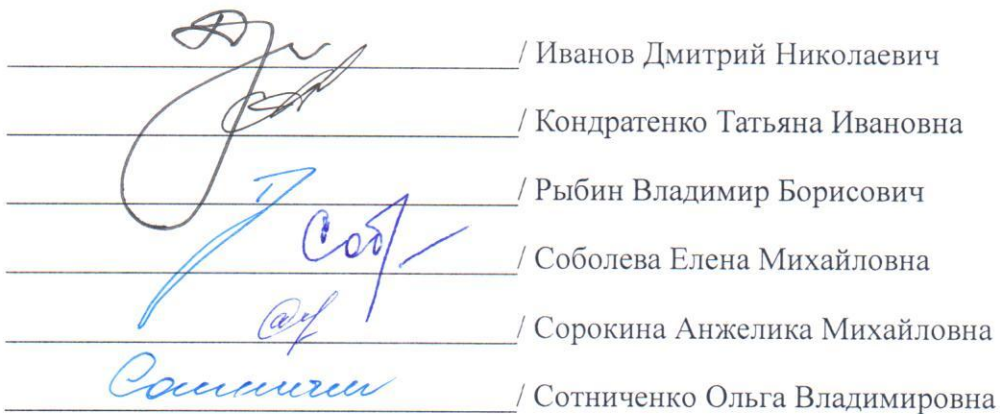 / Иванов Дмитрий Николаевич
/ Кондратенко Татьяна Ивановна
/ Рыбин Владимир Борисович
Соб / Соболева Елена Михайловна
/ Сорокина Анжелика Михайловна
/ Сотниченко Ольга Владимировна